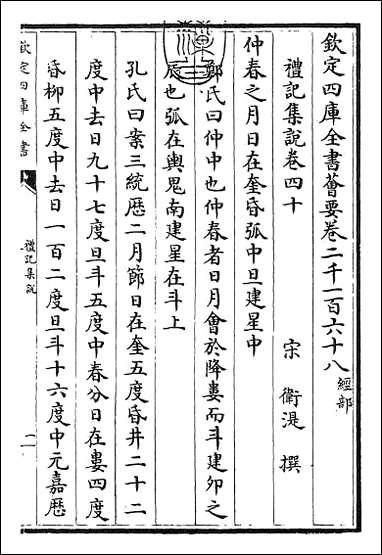 欽定四庫全書薈要卷二千一百六十八 經部
禮記集說卷四十
宋 衛湜 撰
仲春之月日在奎昏弧中旦建星中
鄭氏曰仲中也仲春者日月會於降婁而斗建夘之
辰也弧在輿鬼南建星在斗上
孔氏曰案三統厯二月節日在奎五度昏井二十二
度中去日九十七度旦斗五度中春分日在婁四度
昏柳五度中去日一百二度旦斗十六度中元嘉厯
欽定四庫全書
禮記集說
一